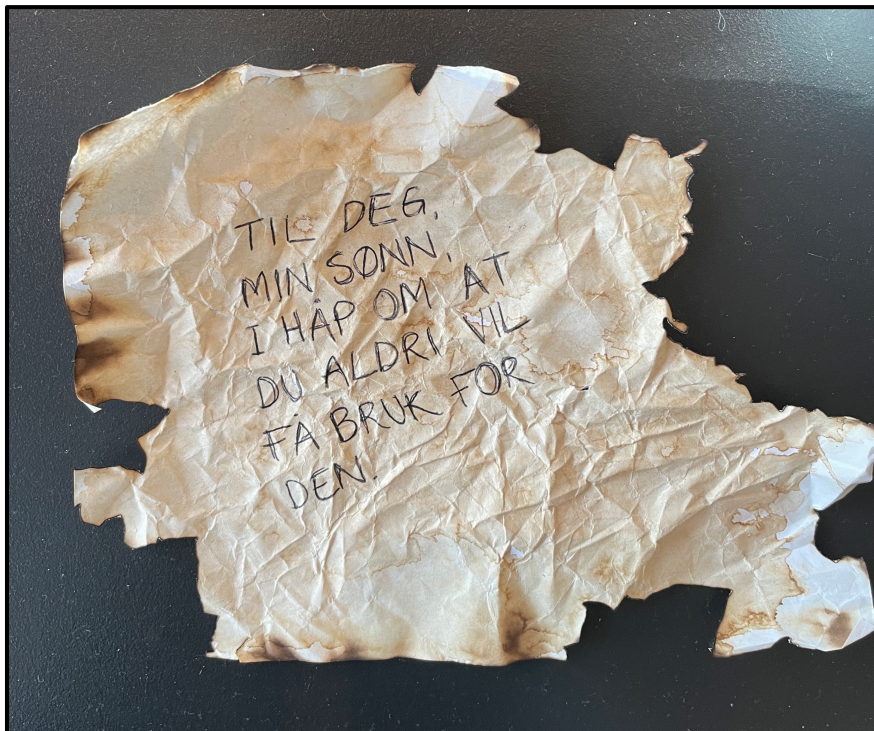 TIL DEG,
MIN SØNN,
I HÅP OM AT
DU ALDRI VIL
FÅ BRUK FOR
DEN.